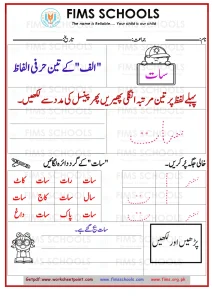 FIMS SCHOOLS
The name is Reliable..... Your child is our child
نام: جماعت: تاریخ:
"الف" کے تین حرفی الفاظ
سات
پہلے لفظ پر تین مرتبہ انگلی پھیریں پھر پنسل کی مدد سے لکھیں۔
سات
خالی جگہ پُر کریں۔
"سات" کے گرد دائرہ لگائیں
سات رات سات کاٹ
سال سات کاج سات
سات پاک سات داغ
پڑھیں اور لکھیں
www.fimsschools.com
www.fims.org.pk